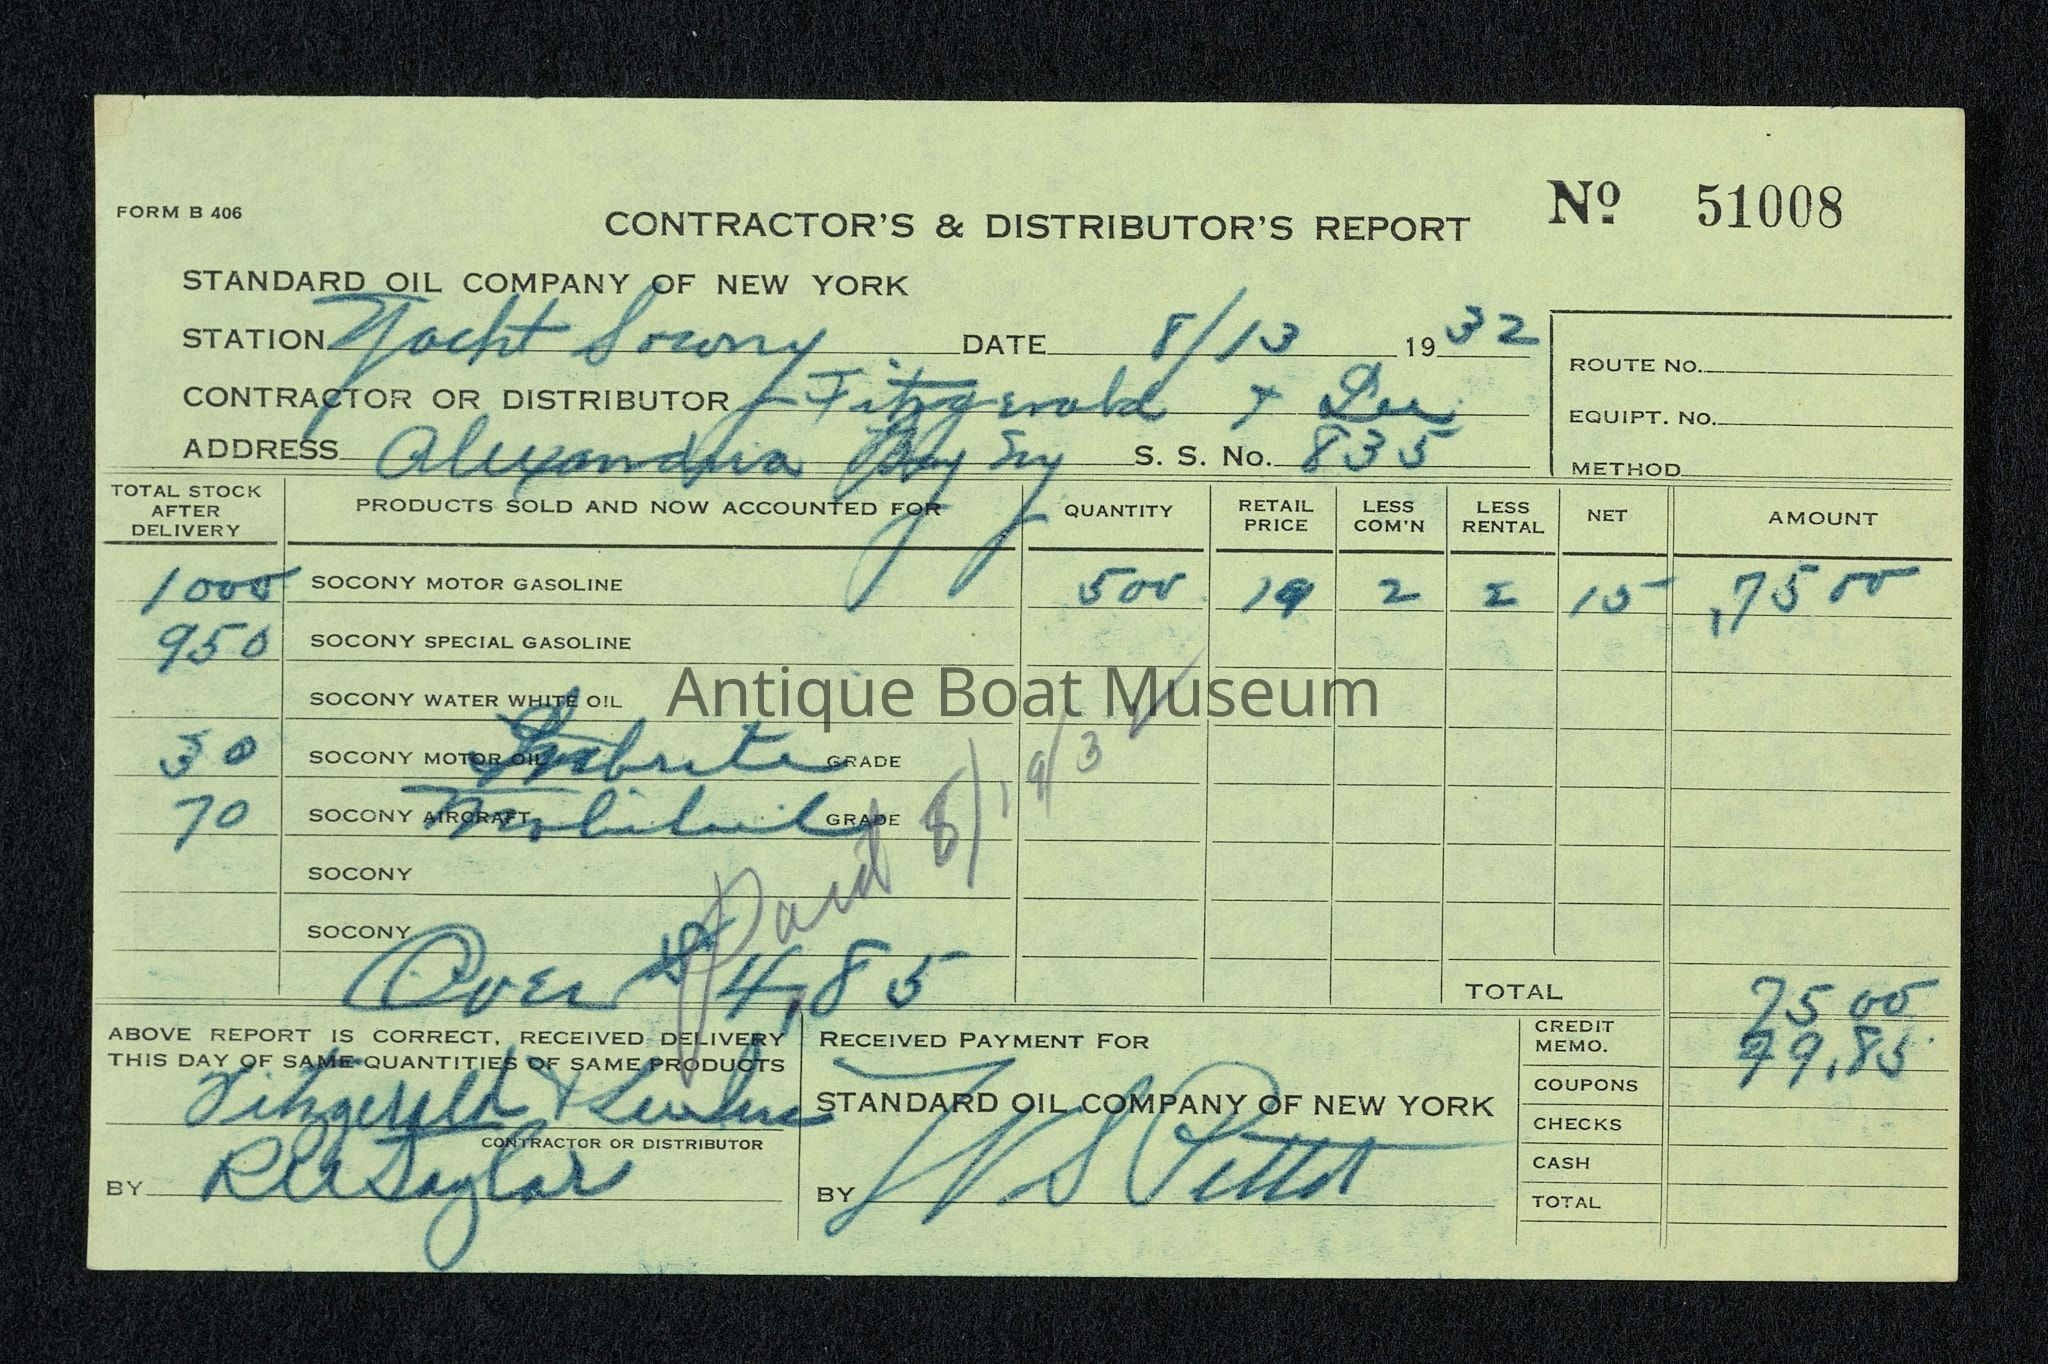 FORM B 406
CONTRACTOR'S & DISTRIBUTOR'S REPORT
Nº 51008
STANDARD OIL COMPANY OF NEW YORK
STATION Yacht Socony DATE 8/13 1932
CONTRACTOR OR DISTRIBUTOR Fitzgerald + Lee
ADDRESS Alexandria Bay Ny S. S. No. 835
ROUTE NO.
EQUIPT. NO.
METHOD
TOTAL STOCK AFTER DELIVERY PRODUCTS SOLD AND NOW ACCOUNTED FOR QUANTITY RETAIL PRICE LESS COM'N LESS RENTAL NET AMOUNT
1000 SOCONY MOTOR GASOLINE 500 19 2 2 15 75 00
950 SOCONY SPECIAL GASOLINE
SOCONY WATER WHITE OIL
Antique Boat Museum
30 SOCONY MOTOR OIL GRADE
70 SOCONY AIRCRAFT Mobiloil GRADE
SOCONY
SOCONY
Paid 8/19/32
Over $4.85
TOTAL 75 00
ABOVE REPORT IS CORRECT, RECEIVED DELIVERY
THIS DAY OF SAME QUANTITIES OF SAME PRODUCTS
Fitzgerald &
CONTRACTOR OR DISTRIBUTOR
BY Taylor
RECEIVED PAYMENT FOR
STANDARD OIL COMPANY OF NEW YORK
BY W S Pettit
CREDIT MEMO. 79.85
COUPONS
CHECKS
CASH
TOTAL